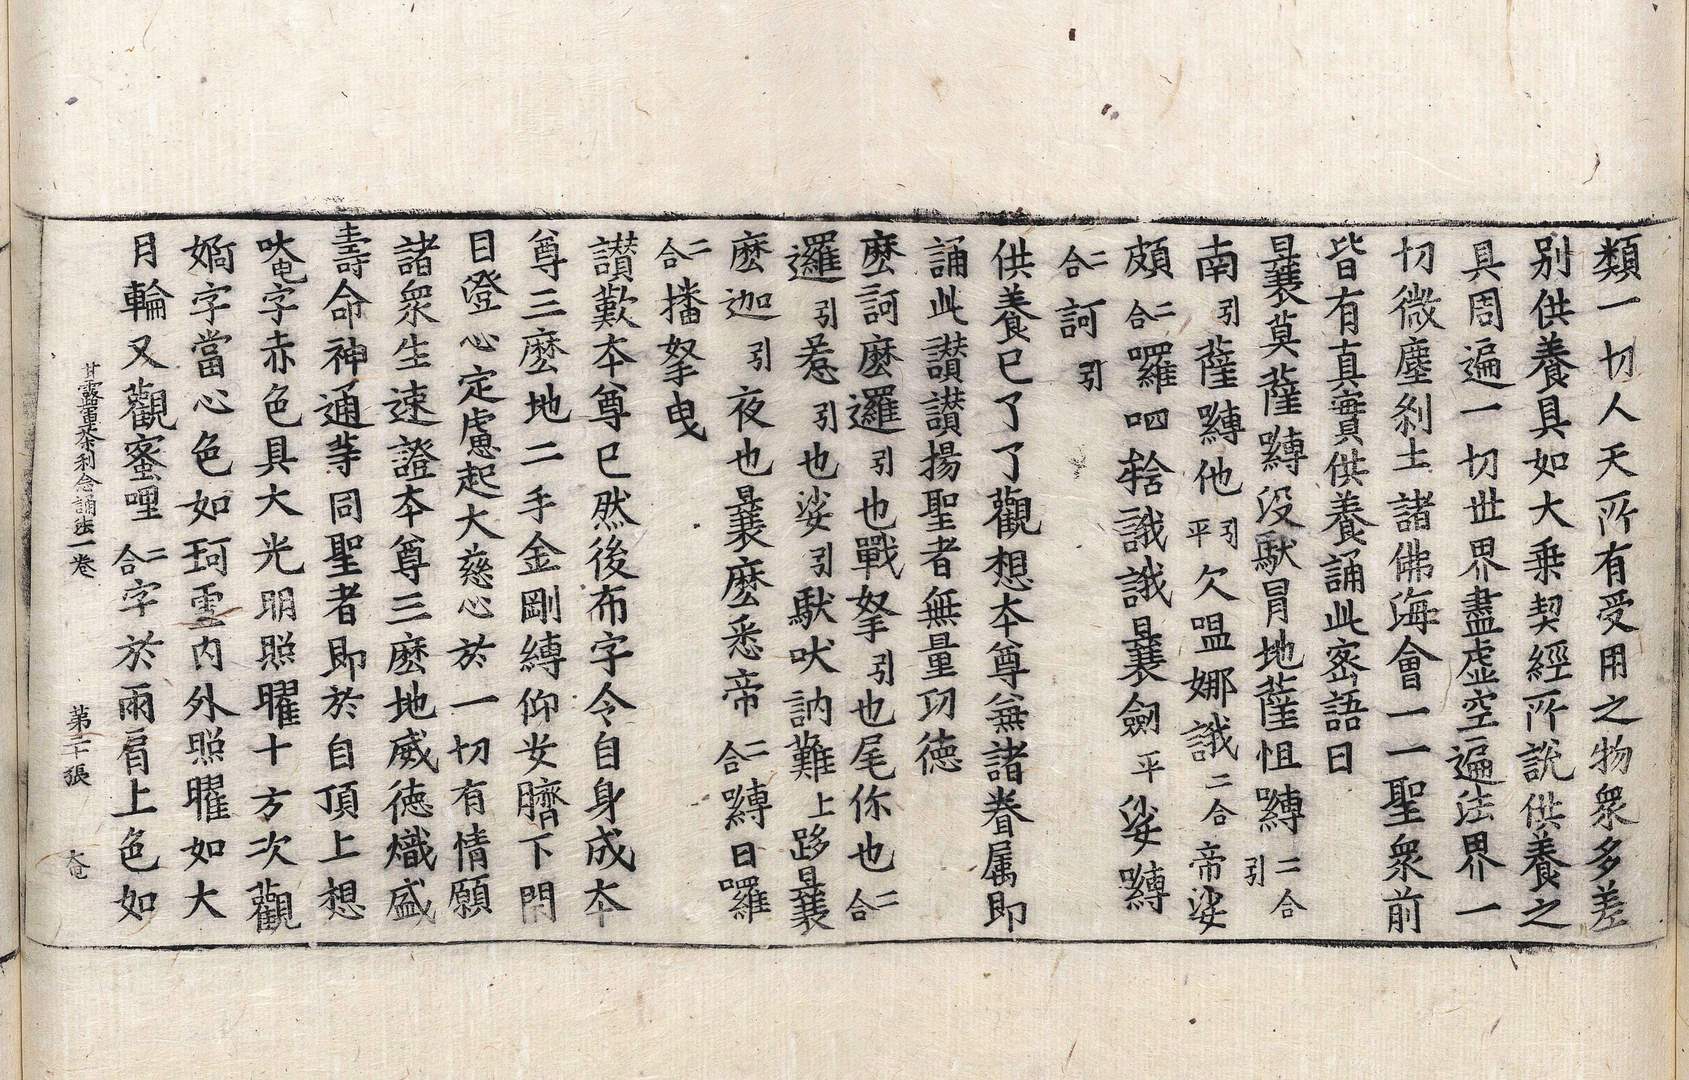 類一切人天所有受用之物衆多差
别供養具如大乗契經所說供養之
具周遍一切世界盡虚空遍法界一
切微塵刹土諸佛海會一一聖衆前
皆有真實供養誦此密語曰
曩莫薩嚩没馱冐地薩怛嚩二合引
南引薩嚩他引平欠嗢娜誐二合帝娑
頗二合囉呬𤚥誐誐曩劒平娑嚩
二合訶引
供養已了了觀想本尊并諸眷属即
誦此讃讃揚聖者無量㓛德
麽訶麽邏引也戰拏引也尾你也二合
邏引惹引也娑引馱吠訥難上跢曩
麽迦引夜也曩麽悉帝二合嚩日囉
二合播拏曳
讃歎本尊已然後布字令自身成本
尊三麽地二手金剛縛仰安臍下閇
目澄心定慮起大慈心於一切有情願
諸衆生速證本尊三麽地威徳熾盛
壽命神通等同聖者即於自頂上想
吠字赤色具大光明照曜十方次觀
字當心色如珂雪内外照曜如大
月輪又觀蜜哩二合字於兩肩上色如
甘露軍荼利念誦法一卷 第二十張